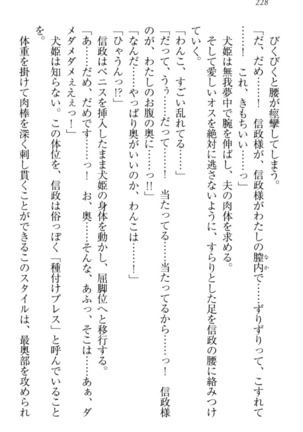 228
びくびくと腰が痙攣してしまう。
「だ、だめ……！　信政様が、信政様がわたしの膣内で……ずりずりって、こすれて……っ！　これ、きもちいい……っ」
犬姫は無我夢中で腕を伸ばし、夫の肉体を求める。
そして愛しいオスを絶対に逃さないように、すらりとした足を信政の腰に絡みつけていく。
「わんこ、すごい乱れてる……」
「だって、うぅ……だって……！　当たってる……当たってるから……っ！　信政様のが、わたしのお腹の奥に……っ!!」
「なんだ……やっぱり奥がいいのか、わんこは……！」
「ひゃうんっ!?」
信政はペニスを挿入したまま犬姫の身体を動かし、屈脚位へと移行する。
「あ……だめ、だめです……っ！　お、奥……そんな、あふっ、そこは……あぁ、ダメダメダメえぇぇっ！」
犬姫は知らない。この体位を、信政は俗っぽく「種付けプレス」と呼んでいることを。
体重を掛けて肉棒を深く刺し貫くことができるこのスタイルは、最奥部を攻められ